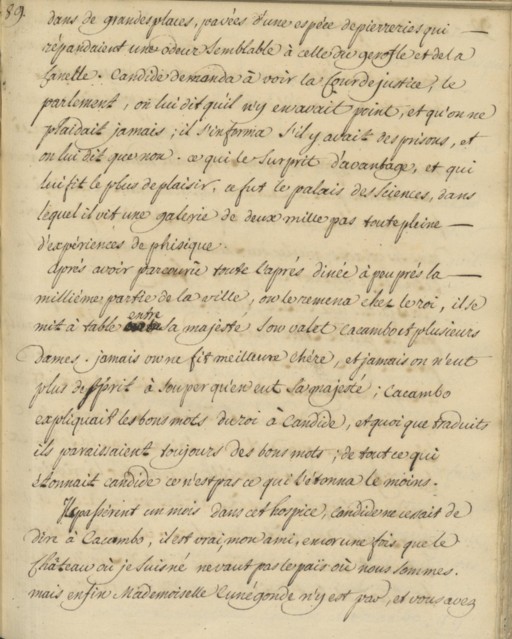 89.
dans de grandes places, pavées d'une espéce de pierreries qui
répandaient une odeur semblable à celle du gerofle et de la
canelle. Candide demanda à voir la Cour de justice, le
parlement, on lui dit qu'il n'y en avait point, et qu'on ne
plaidait jamais; il s'informa s'il y avait des prisons, et
on lui dit que non. ce qui le surprit d'avantage, et qui
lui fit le plus de plaisir, ce fut le palais des Sciences, dans
lequel il vit une galerie de deux mille pas toute pleine
d'expériences de phisique.
Après avoir parcouru toute l'aprés dinée à peu prés la
milliéme partie de la ville, on le remena chez le roi, il se
mit à table entre sa majesté son valet Cacambo et plusieurs
Dames. jamais on ne fit meilleure chére, et jamais on n'eut
plus d'esprit à souper qu'en eut sa majesté; Cacambo
expliquait les bons mots du roi à Candide, et quoique traduits
ils paraissaient toujours des bons mots; de tout ce qui
étonnait candide ce n'est pas ce qui l'étonna le moins.
Ils passérent un mois dans cet hospice, Candide ne cessait de
dire à Cacambo, il est vrai, mon ami, encor une fois, que le
Château où je suis né ne vaut pas le païs où nous sommes.
mais enfin Mademoiselle Cunégonde n'y est pas, et vous avez